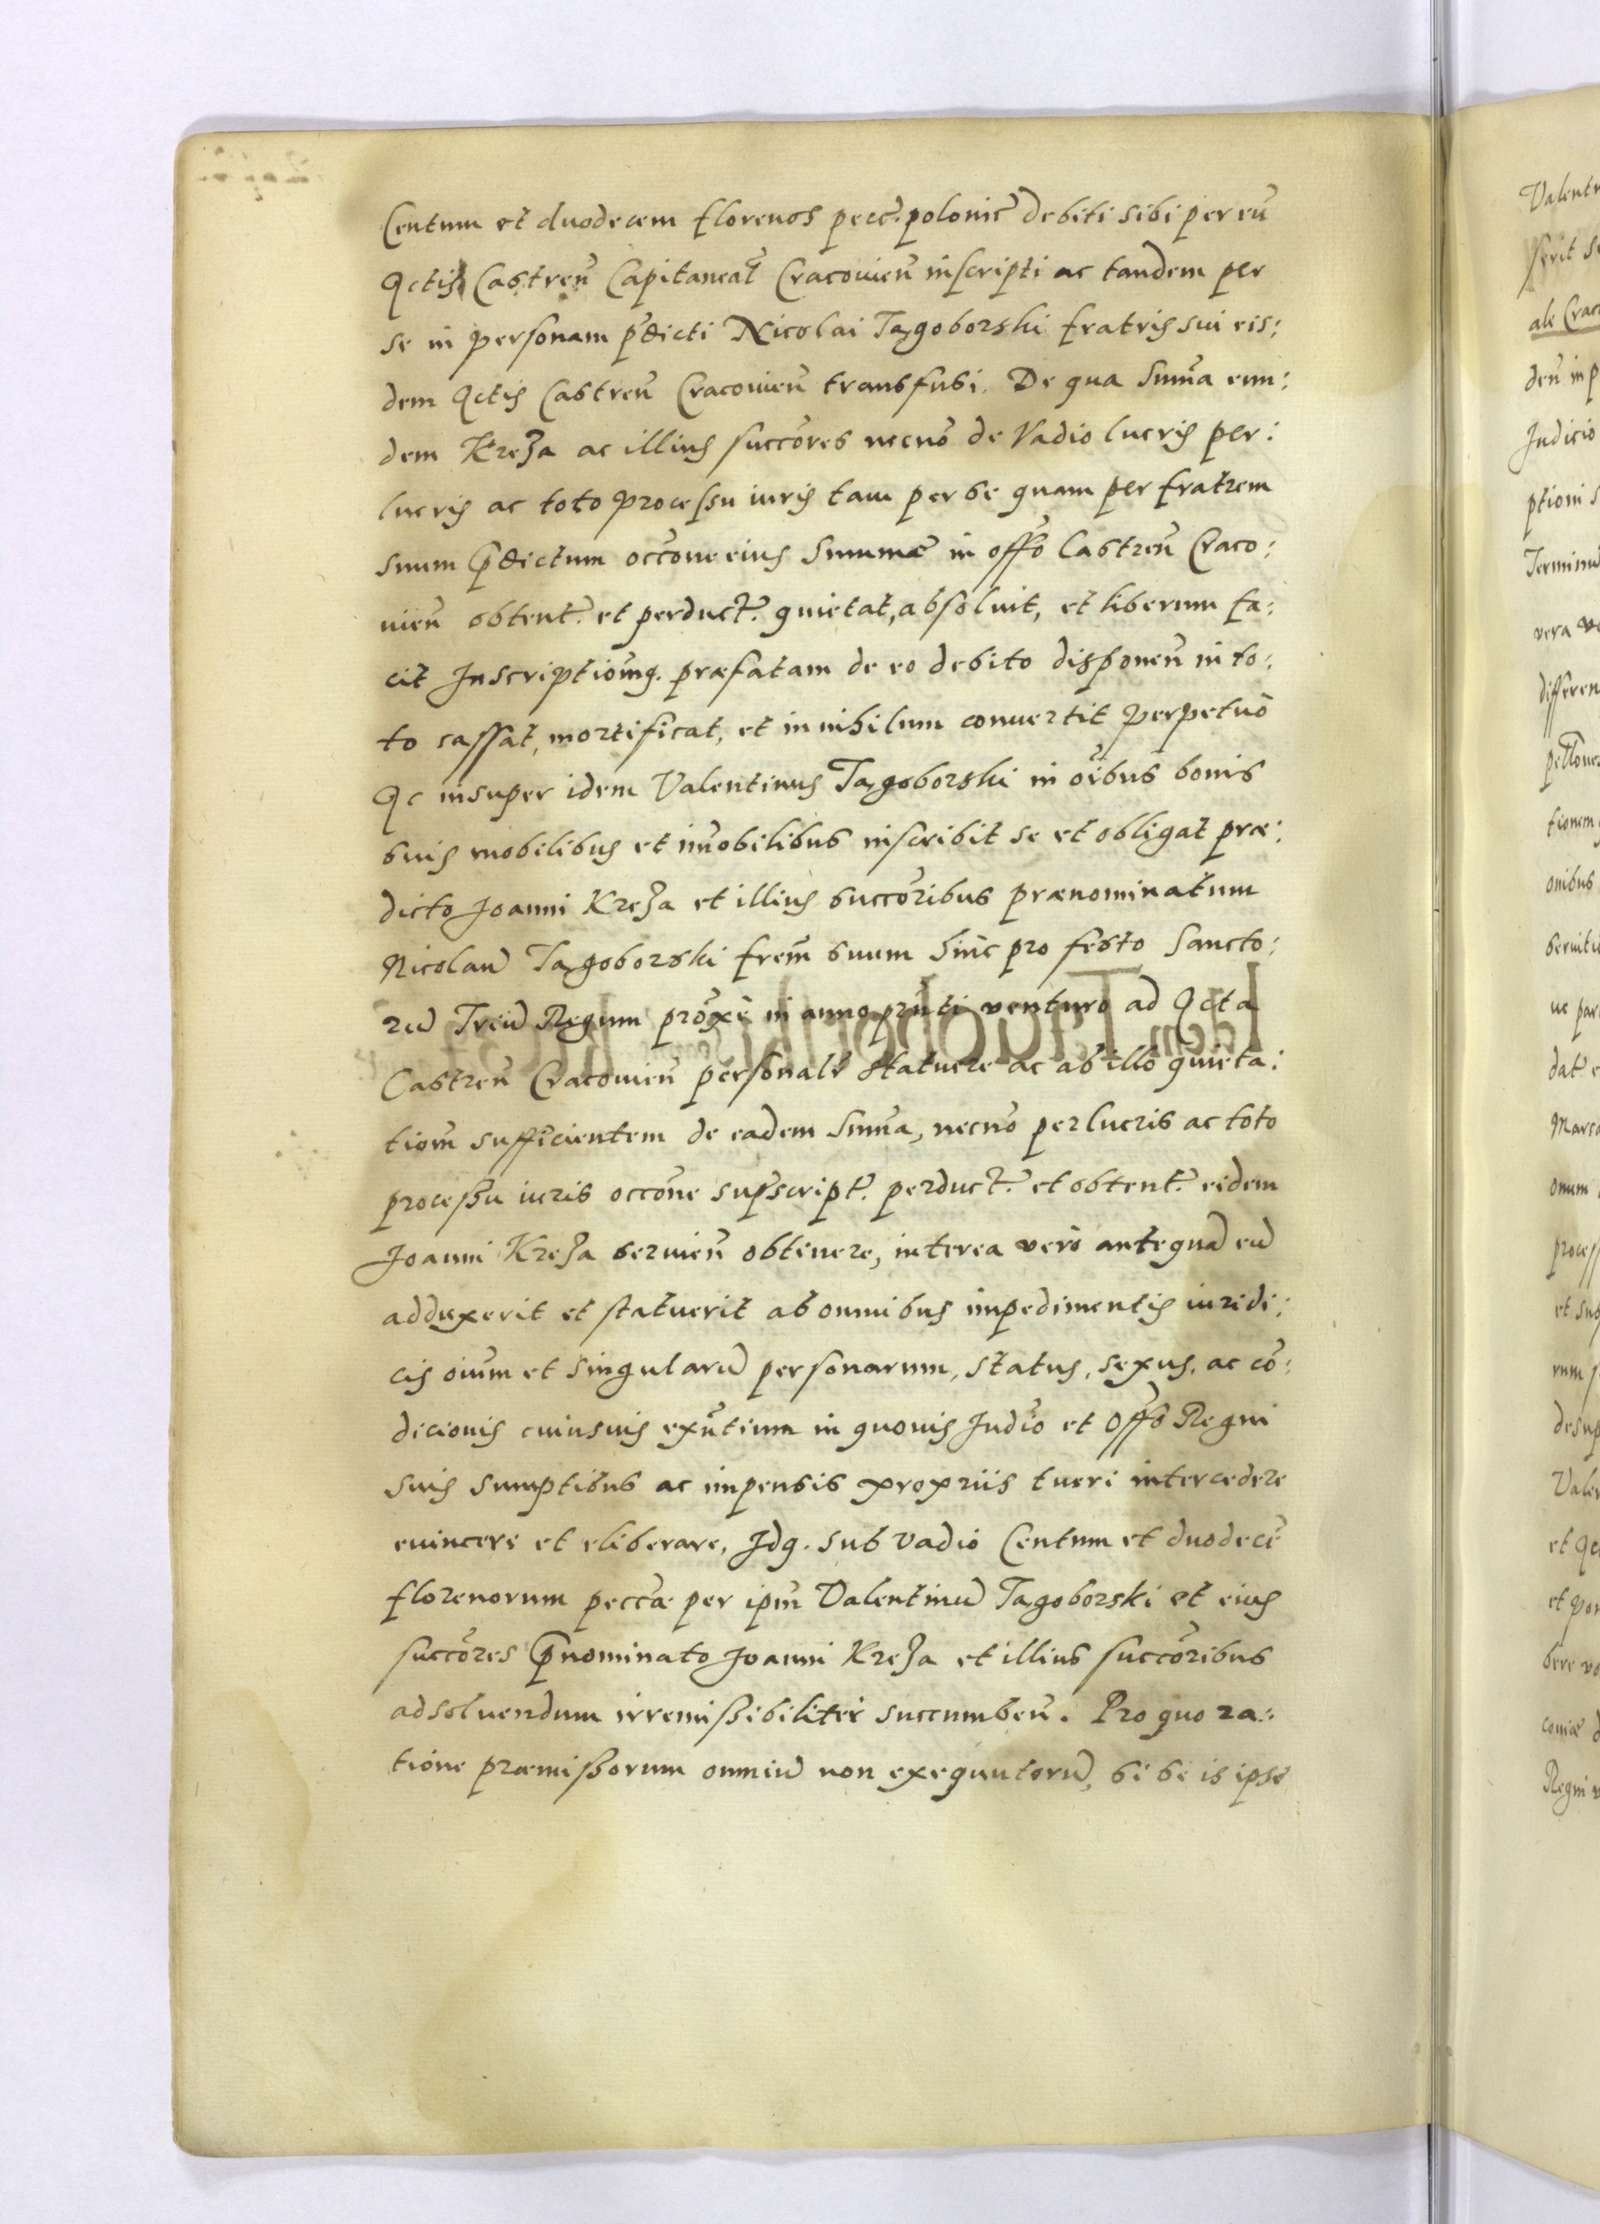 Centum et duodecem florenos pecc. polonic̄ debiti sibi per eū
Actis Castren̄ Capitaneat̄ Cracouien̄ inscripti ac tandem per
se in personam p̄dicti Nicolai Tagoborski fratris sui eis:
dem Actis Castren̄ Cracouien̄ transfusi. De qua Sum̄a eun:
dem Kreza ac illius succōres necnō de Vadio lucris per:
lucris ac toto processu iuris tam per se quam per fratrem
suum p̄dictum occōne eius Summæ in offō Castren̄ Craco:
uien̄ obtent̄. et perduct̄. quietat, absoluit, et liberum fa:
cit Inscriptiōnq. præfatam de eo debito disponen̄ in to:
to cassat, mortificat, et in nihilum conuertit perpetuò
Ac insuper idem Valentinus Tagoborski in oībus bonis
suis mobilibus et im̄obilibus inscribit se et obligat præ:
dicto Joanni Kreza et illius succōribus prænominatum
Nicolaū Tagoborski frem̄ suum hinc pro festo Sancto:
rū Triū Regum prōxè in anno prn̄ti venturo ad Acta
Castren̄ Cracouien̄ personalr̄ statuere ac ab illo quieta:
tiom̄ sufficientem de eadem Sum̄a, necnō perlucris ac toto
processu iuris occōne sup̄script̄. perduct̄. et obtent̄. eidem
Joanni Kreza seruien̄ obtinere, interea verò antequā eū
adduxerit et statuerit ab omnibus impedimentis iuridi:
cis oium̄ et singularū personarum, status, sexus, ac cō:
dicionis cuiusuis exn̄tium in quouis Judīo et Offō Regni
suis sumptibus ac impensis propriis tueri intercedere
euincere et eliberare, Idq. sub vadio Centum et duodecē
florenorum peccæ per ipm̄ Valentinū Tagoborski et eius
succōres p̄nominato Joanni Kreza et illius succōribus
adsoluendum irremissibiliter succumben̄. Pro quo ra:
tione præmissorum omniū non exequutorū, si se is ipse